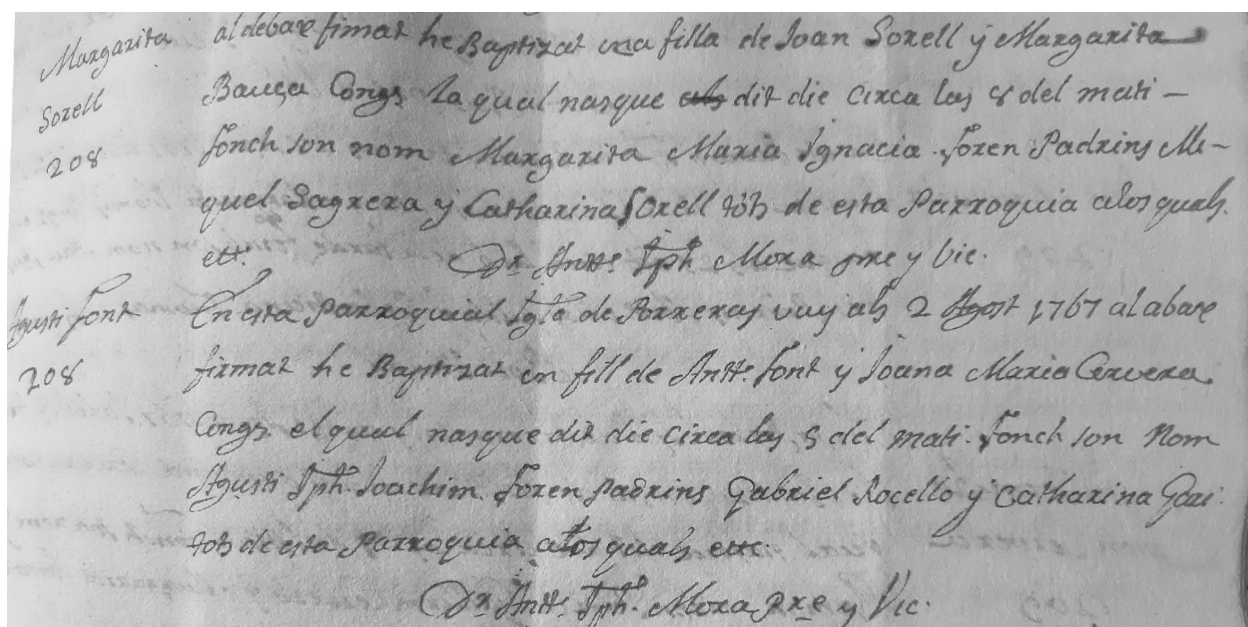 Margarita
Sorell
208
al debax firmat he Baptizat una filla de Joan Sorell y Margarita
Bauça Congs. la qual nasque als dit die circa las 8 del mati –
fonch son nom Margarita Maria Ignacia. foren Padrins Mi-
quel Sagrera y Catharina Sorell tots de esta Parroquia alos quals.
ett.
Dr. Antt. Jph. Mora pre y Vic.
Agusti font
208
En esta Parroquial Igla. de Porreras vuy als 2 Agost 1767 al abax
firmat he Baptizat un fill de Antt. font y Joana Maria Cervera
Congs. el qual nasque dit die circa las 5 del mati. fonch son Nom
Agusti Jph. Joachim. foren Padrins Gabriel Rocello y Catharina Gari.
tots de esta Parroquia alos quals ett.
Dr. Antt. Jph. Mora pre y Vic.